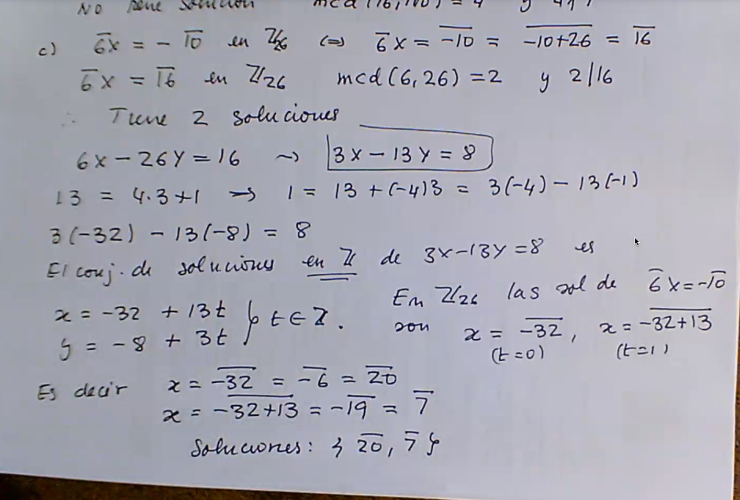 No tiene solución mcd(16,100) = 4 y 4∤
c) 6̅x = - 1̅0̅ en ℤ/26 ⇔ 6̅x = -̅1̅0̅ = -̅1̅0̅+̅2̅6̅ = 1̅6̅
6̅x = 1̅6̅ en ℤ/26 mcd(6,26) = 2 y 2/16
∴ Tiene 2 soluciones
6x - 26y = 16 ~> 3x - 13y = 8
13 = 4·3+1 → 1 = 13 + (-4)3 = 3(-4) - 13(-1)
3(-32) - 13(-8) = 8
El conj. de soluciones en ℤ de 3x-13y=8 es
x = -32 + 13t
y = -8 + 3t } t ∈ ℤ.
En ℤ/26 las sol de 6̅x=-1̅0̅
son x = -̅3̅2̅, x = -̅3̅2̅+̅1̅3̅
(t=0) (t=1)
Es decir x = -̅3̅2̅ = -̅6̅ = 2̅0̅
x = -̅3̅2̅+̅1̅3̅ = -̅1̅9̅ = 7̅
Soluciones: { 2̅0̅, 7̅ }